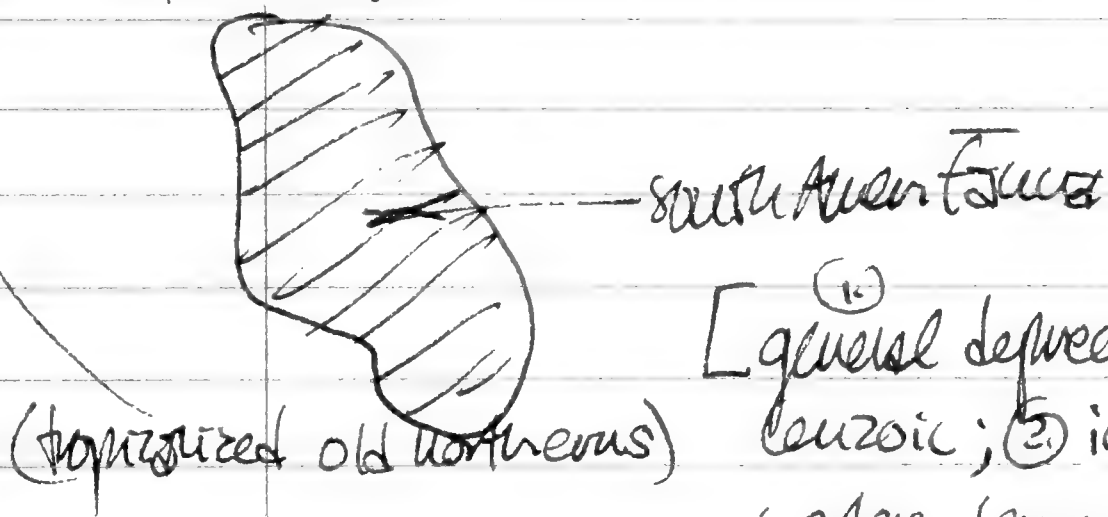 South Amer. Fauna
① [general
(tropicalized old northerns)
Cenzoic; ②